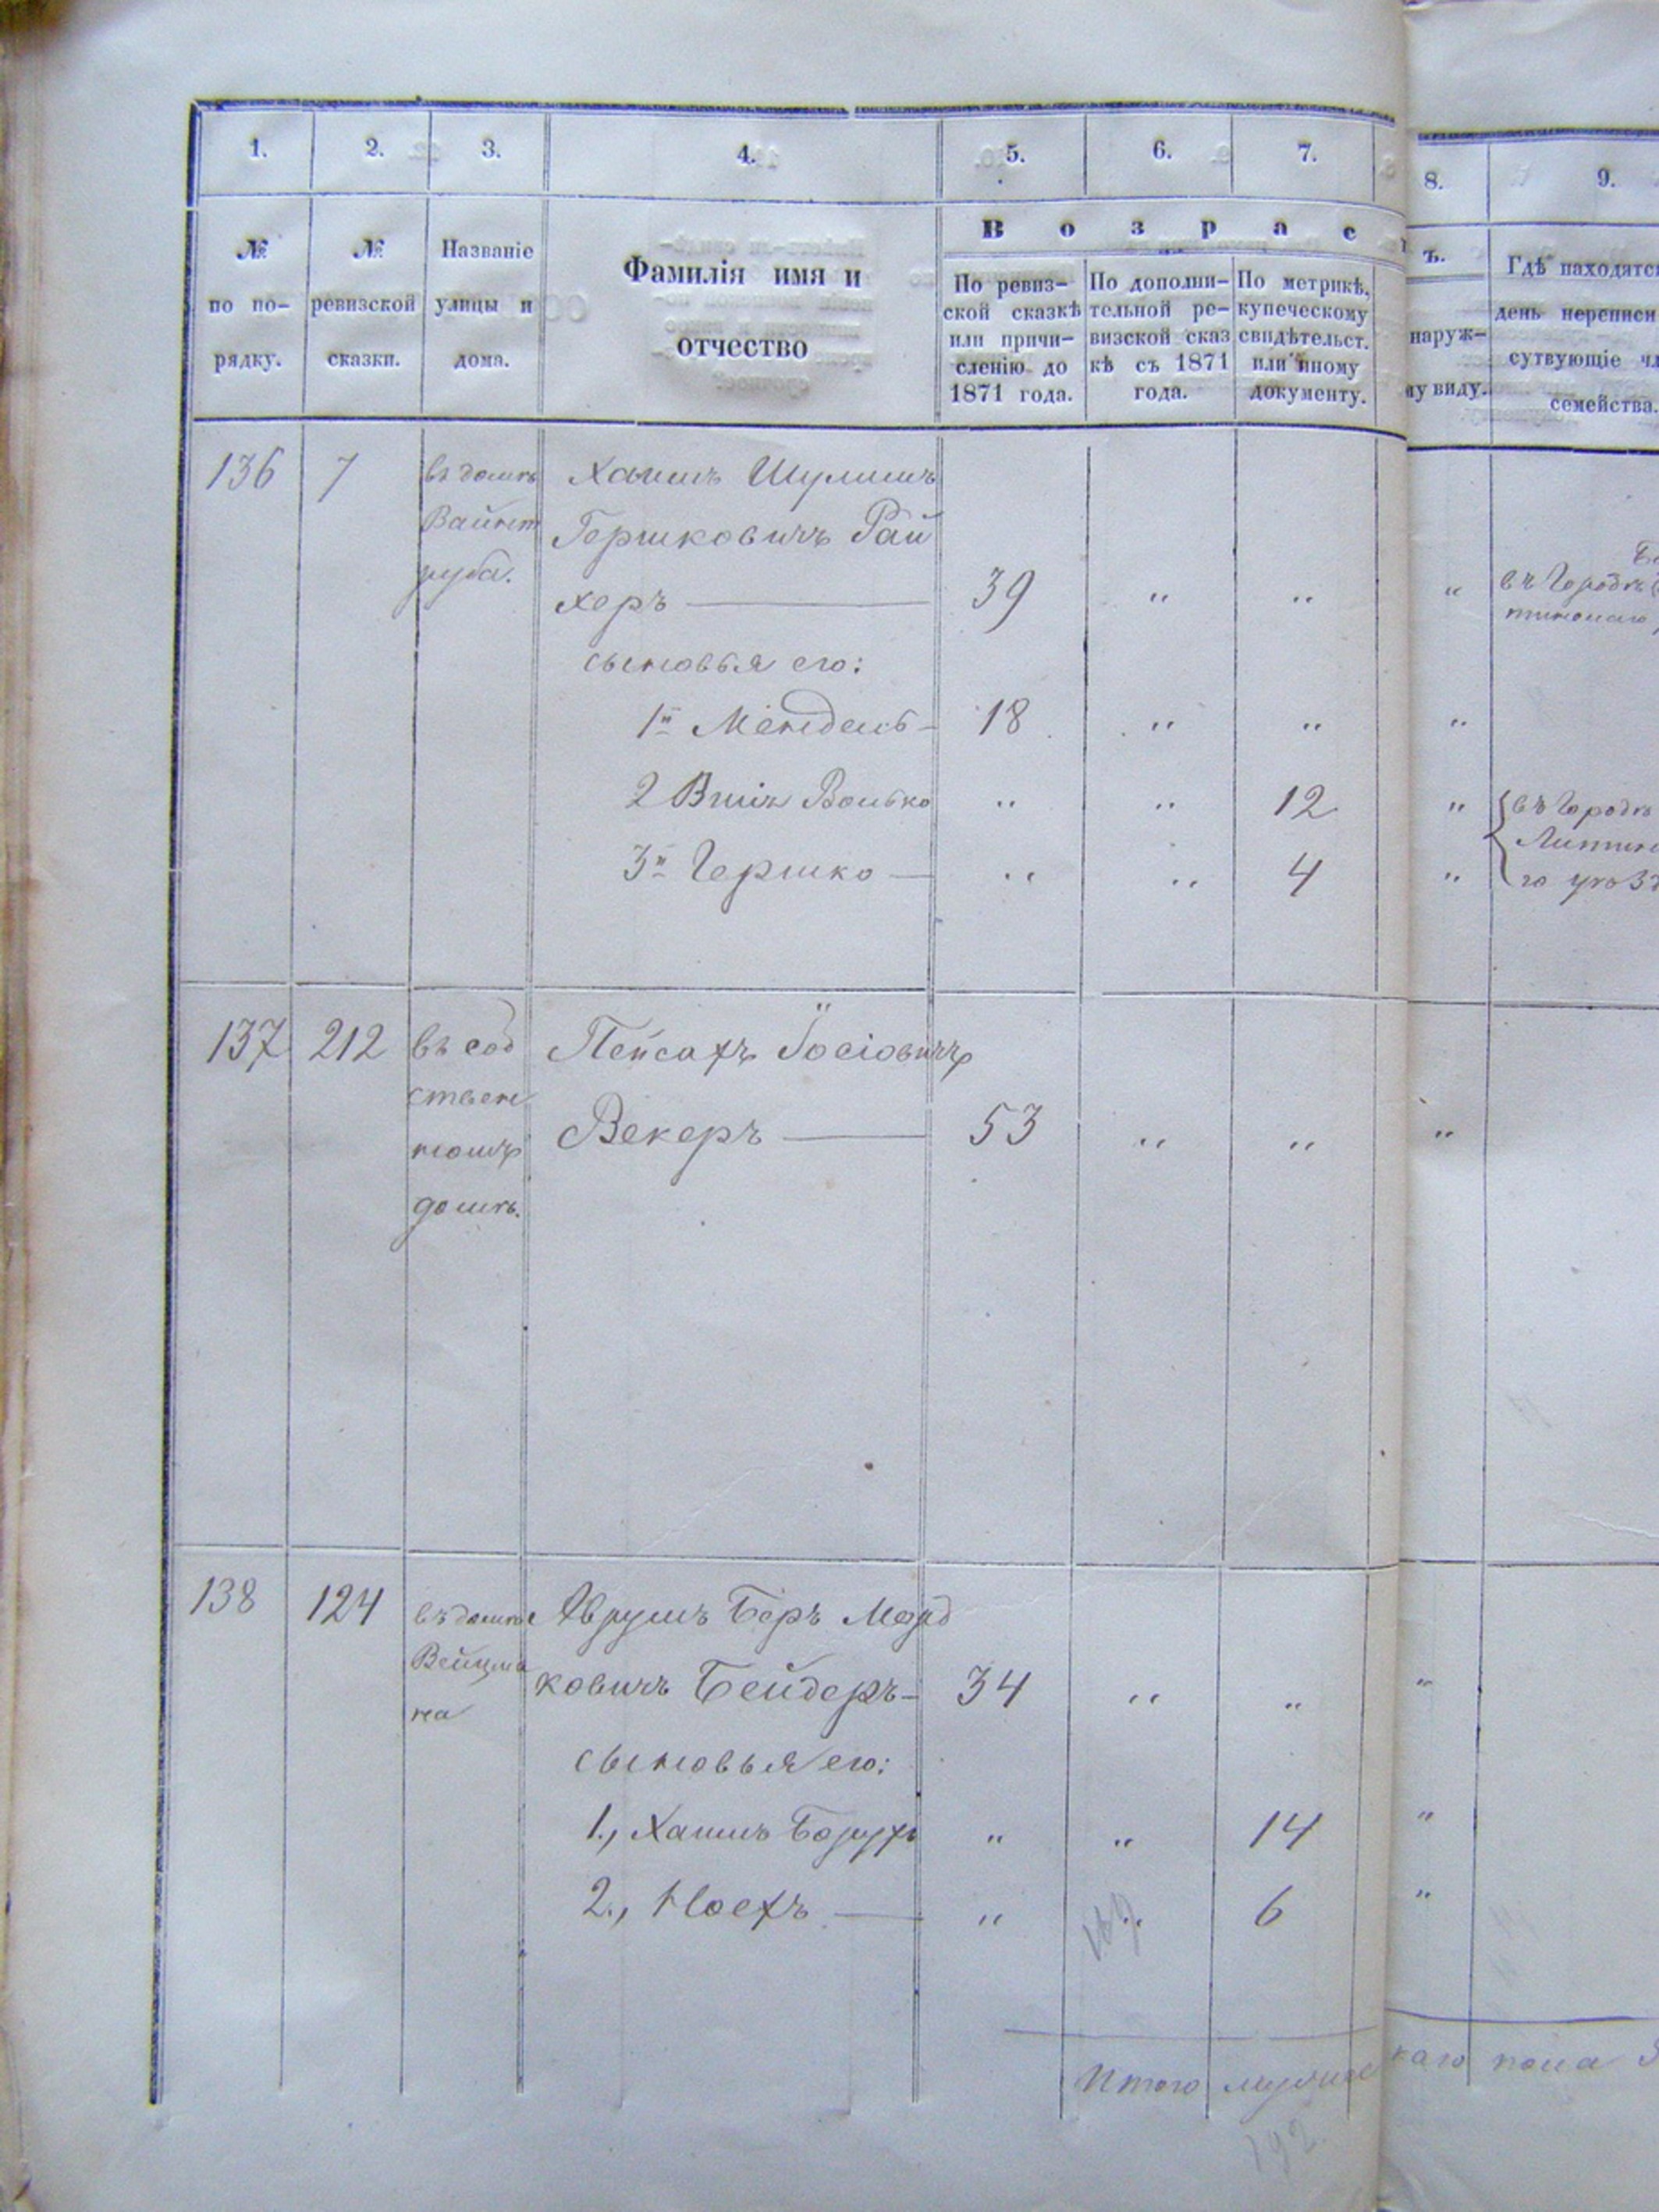 1. 2. 3. 4. 5. 6. 7. 8. 9.
№ по по-рядку.
№ ревизской сказки.
Названіе улицы и дома.
Фамилія имя и
отчество
В о з р а с
ъ.
По ревиз-
ской сказкѣ
или причи-
сленію до
1871 года.
По дополни-
тельной ре-
визской сказ
кѣ съ 1871
года.
По метрикѣ,
купеческому
свидѣтельст.
или иному
документу.
наруж-
му виду.
Гдѣ находятся
день переписи
сутвующіе чл
семейства.
136 7 въ домѣ Хаимъ Шулимъ
Вайнт Гершковичъ Рай
руба. херъ — 39 " " " въ Городкѣ
сыновья его:
1й Мендель - 18 " " "
2 Волько " " 12 " въ Городкѣ
Литинс
3й Гершко — " " 4 " го уѣзд
137 212 въ соб Пейсахъ Іосіовичъ
ствен
Векеръ — 53 " " "
номъ
домѣ.
138 124 въ домѣ Аврумъ Беръ Морд
Вейцма ковичъ Бейдеръ - 34 " " "
на
сыновья его:
1., Хаимъ Борухъ " " 14 "
2., Ноехъ — " " 6 "
169
Итого мужескаго пола
192